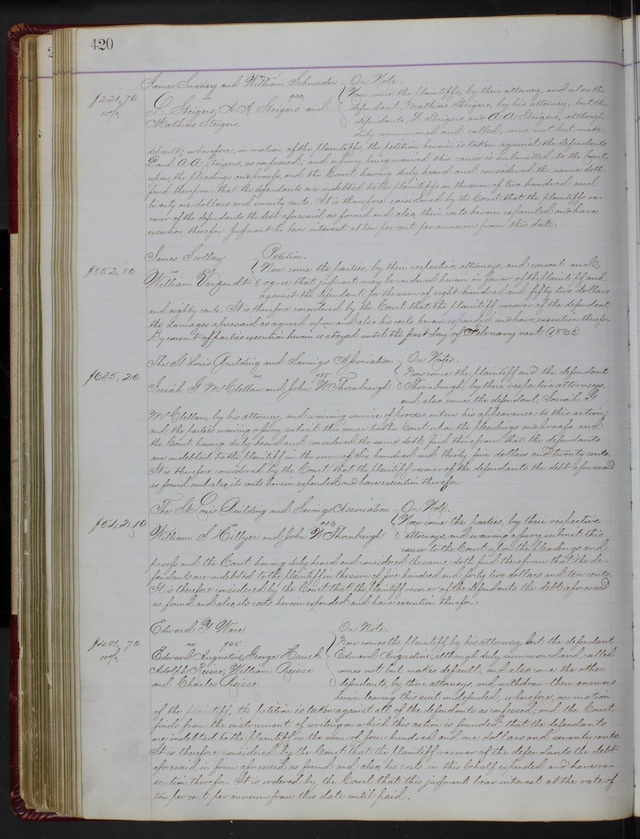 420
James Sweney and William Schneider } On Note.
$221,70 vs } Now come the plaintiffs, by their attorney, and also the
10% L Steigers, A A Steigers and } defendant, Mathias Steigers, by his attorney, but the
Mathias Steigers. defendants, L Steigers and A A Steigers, although
duly summoned and called, come not but make
default; wherefore, on motion of the plaintiffs, the petition herein is taken against the defendants
L and A A Steigers, as confessed; and a jury being waived this cause is submitted to the Court
upon the pleadings and proofs, and the Court having duly heard and considered the same doth
find therefrom that the defendants are indebted to the plaintiffs in the sum of two hundred and
twenty one dollars and seventy cents. It is therefore considered by the Court that the plaintiffs re-
cover of the defendants the debt aforesaid as found and also their costs herein expended and have
execution therefor. Judgment to bear interest at ten per cent per annum from this date.
James Scollay } Petition.
$852,80 vs } Now come the parties, by their respective attorneys, and consent and
William Vangundt } agree that judgment may be rendered herein in favor of the plaintiff and
against the defendant for the sum of eight hundred and fifty two dollars
and eighty cents. It is therefore considered by the Court that the plaintiff recover of the defendant
the damages aforesaid as agreed upon and also his costs herein expended and have execution therefor.
By consent of parties execution herein is stayed until the first day of February next (1862)
The St Louis Building and Savings Association } On Notes.
$635,20 vs } Now come the plaintiff and the defendant
Josiah G McClellan and John W Thornburgh } Thornburgh, by their respective attorneys,
and also comes the defendant, Josiah G
McClellan, by his attorney, and waiving service of process enters his appearance to this action;
and the parties waiving a jury submit this cause to the Court upon the pleadings and proofs and
the Court having duly heard and considered the same doth find therefrom that the defendants
are indebted to the plaintiff in the sum of six hundred and thirty five dollars and twenty cents.
It is therefore considered by the Court that the plaintiff recover of the defendants the debt aforesaid
as found and also its costs herein expended and have execution therefor.
The St. Louis Building and Savings Association } On Note.
$542,10 vs } Now come the parties, by their respective
William S Hillyer and John W Thornburgh } attorneys and waiving a jury submit this
cause to the Court upon the pleadings and
proofs and the Court having duly heard and considered the same doth find therefrom that the de-
fendants are indebted to the plaintiff in the sum of five hundred and forty two dollars and ten cents.
It is therefore considered by the Court that the plaintiff recover of the defendants the debt aforesaid
as found and also its costs herein expended and have execution therefor.
Edward Y Ware } On Note.
$401,70 vs } Now comes the plaintiff by his attorney, but the defendant,
10% Edward Augustine, George Hauck } Edward Augustine, although duly summoned and called
Adolph Reisse, William Reisse } comes not but makes default; and also come the other
and Charles Reisse } defendants, by their attorneys, and withdraw their answers
herein leaving this suit undefended; wherefore, on motion
of the plaintiff, the petition is taken against all of the defendants as confessed, and the Court
finds from the instrument of writing on which this action is founded that the defendants
are indebted to the plaintiff in the sum of four hundred and one dollars and seventy cents.
It is therefore considered by the Court that the plaintiff recover of the defendants the debt
aforesaid in form aforesaid as found and also his costs in this behalf expended and have ex-
ecution therefor. It is ordered by the Court that this judgment bear interest at the rate of
ten per cent per annum from this date until paid.